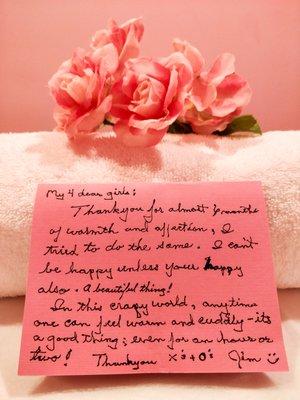 My 4 dear girls;
Thankyou for almost 3 months
of warmth and affection, I
tried to do the same. I can't
be happy unless your happy
also. A beautiful thing!
In this crazy world, anytime
one can feel warm and cuddly - its
a good thing; even for an hour or
two! Thankyou X's + O's Jim ☺